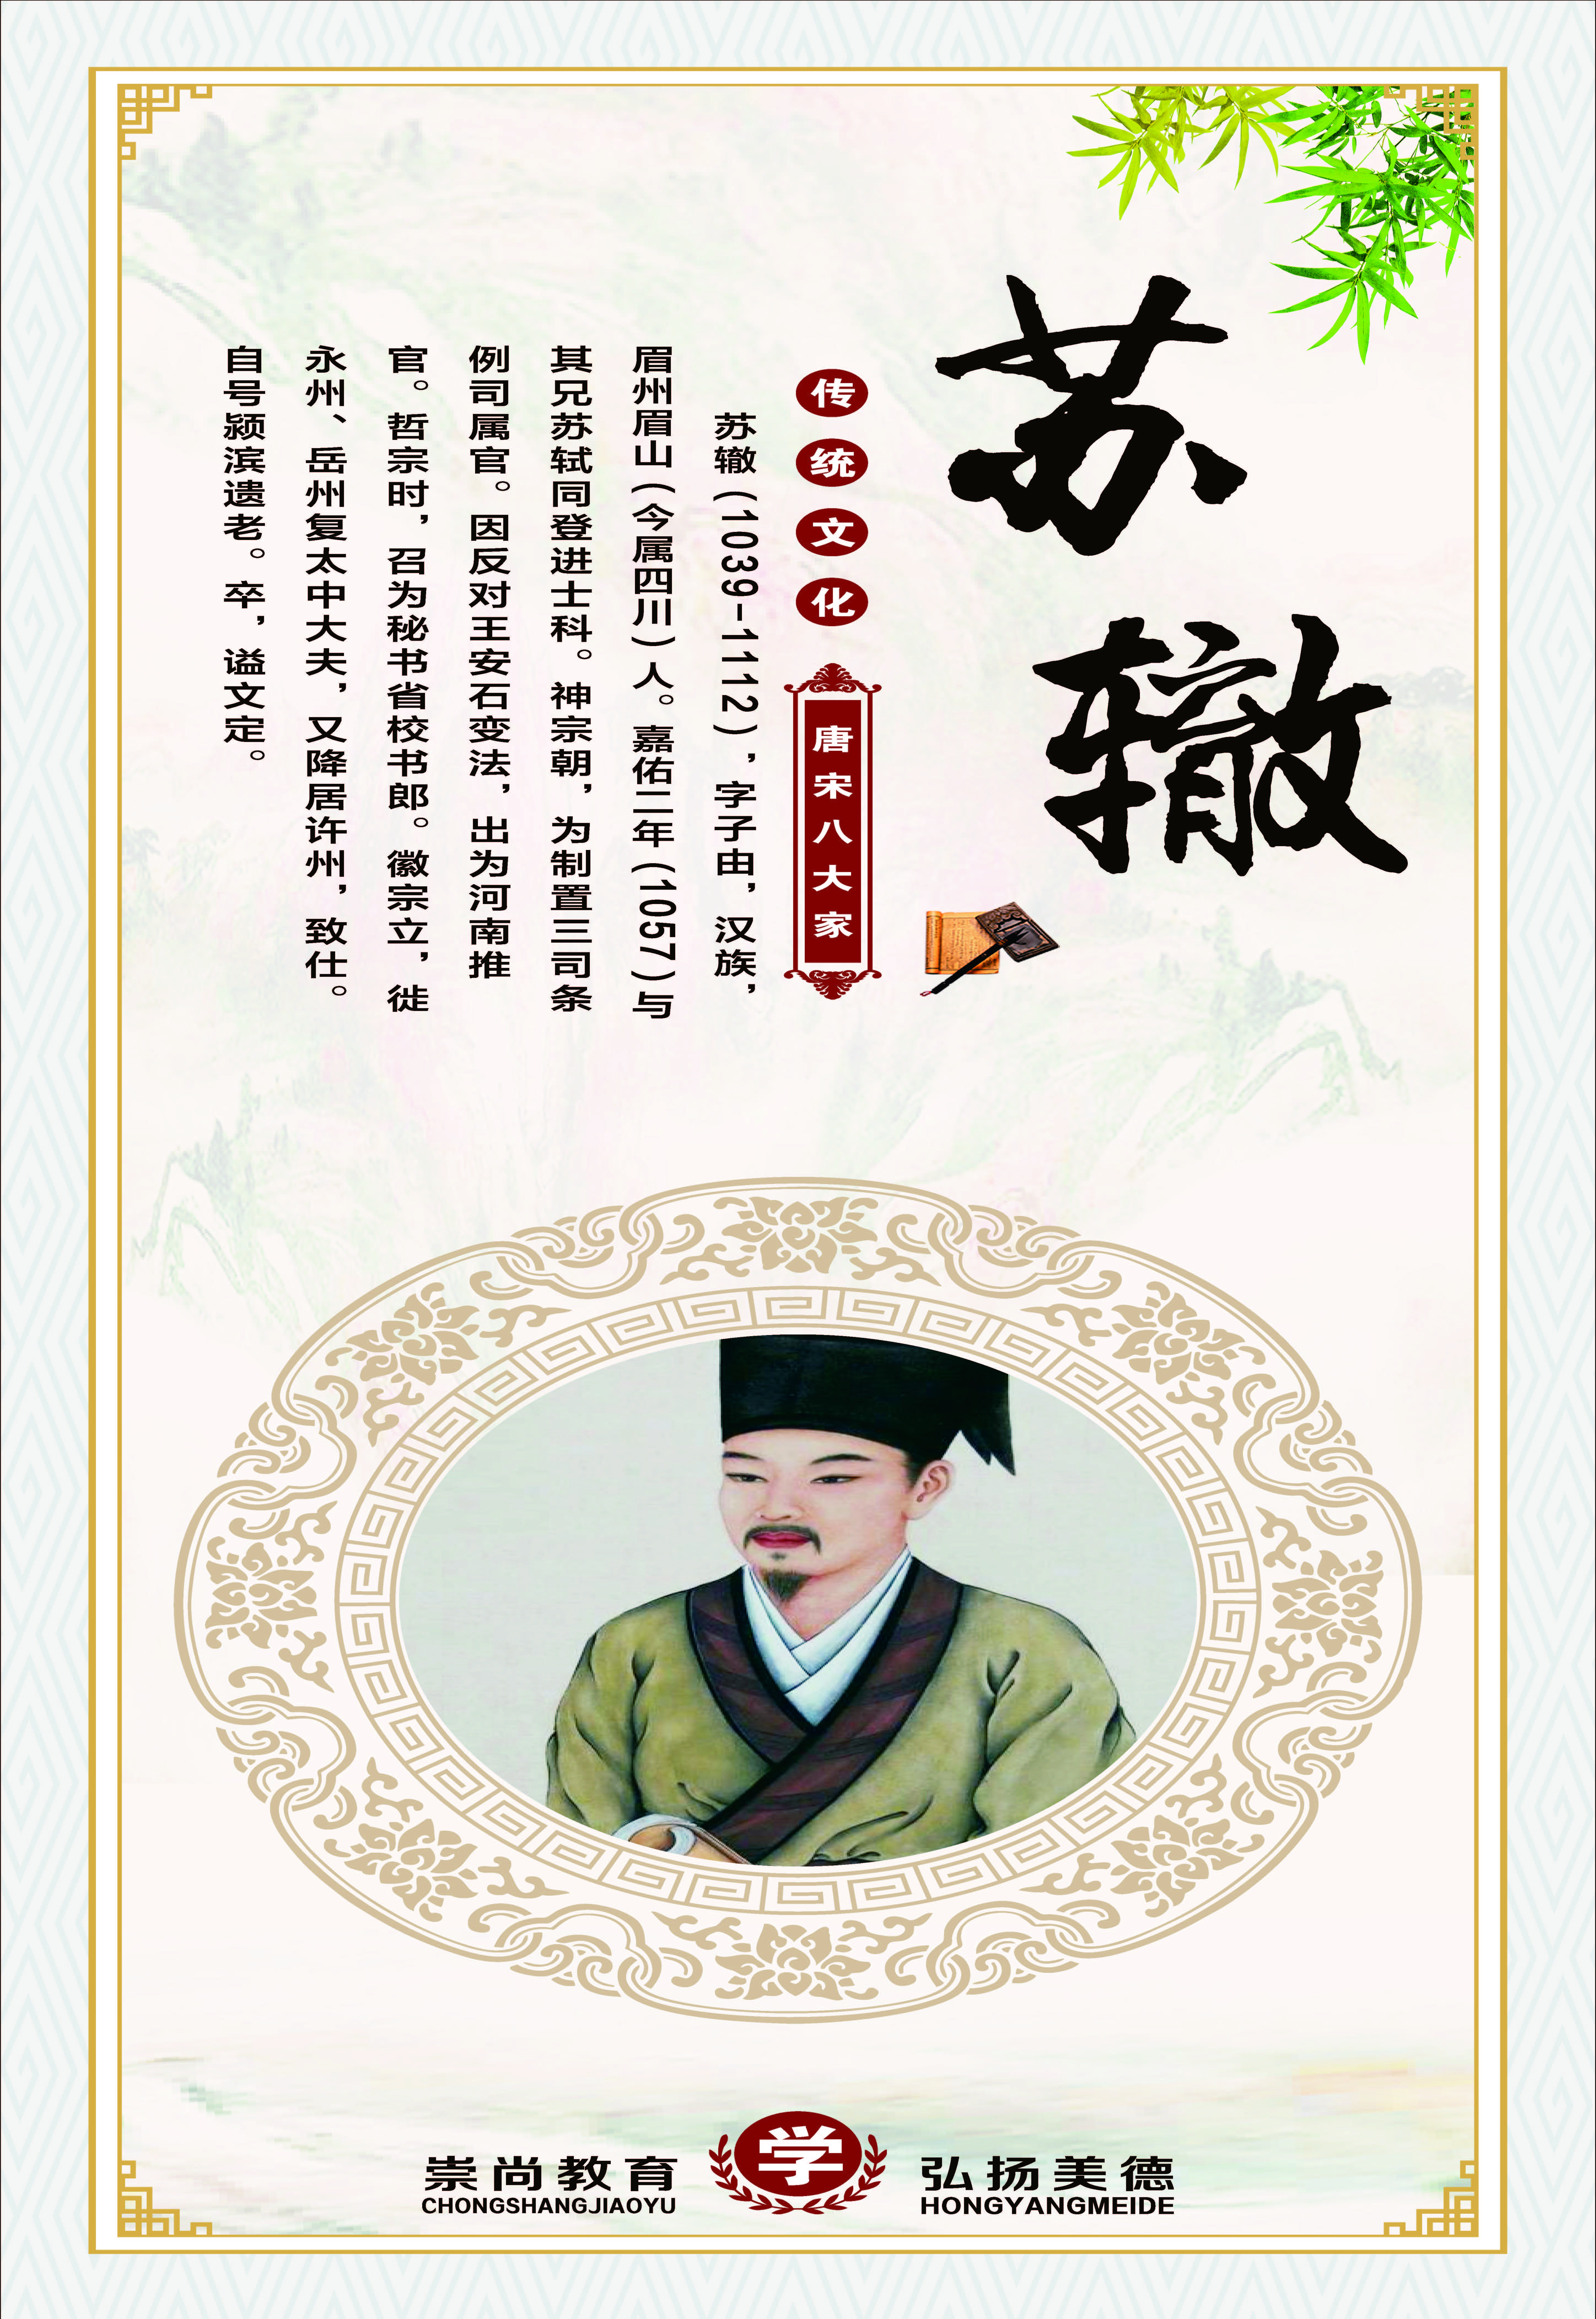 苏辙
传统文化
唐宋八大家
苏辙(1039-1112)，字子由，汉族，
眉州眉山(今属四川)人。嘉佑二年(1057)与
其兄苏轼同登进士科。神宗朝，为制置三司条
例司属官。因反对王安石变法，出为河南推
官。哲宗时，召为秘书省校书郎。徽宗立，徙
永州、岳州复太中大夫，又降居许州，致仕。
自号颍滨遗老。卒，谥文定。
崇尚教育
CHONGSHANGJIAOYU
学
弘扬美德
HONGYANGMEIDE